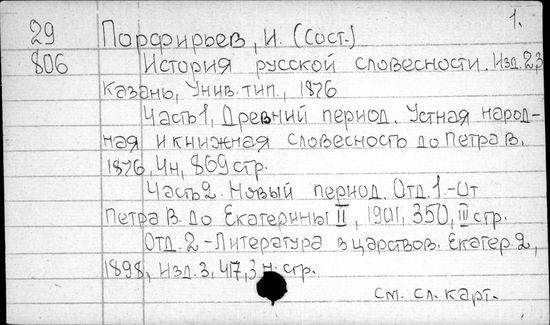 1.
29 Порфирьев, И. (сост.)
806 История русской словесности. Изд. 2,3
Казань, Унив. тип., 1876
Часть 1, Древний период. Устная народ-
ная и книжная словесность до Петра В.
1876, 4н, 869 стр.
Часть 2. Новый период. Отд. 1.-От
Петра В. до Екатерины II, 1901, 350, III стр.
Отд. 2-Литература в царствов. Екатер. 2,
1898, Изд. 3, 417, 3 н. стр.
см. сл. карт.